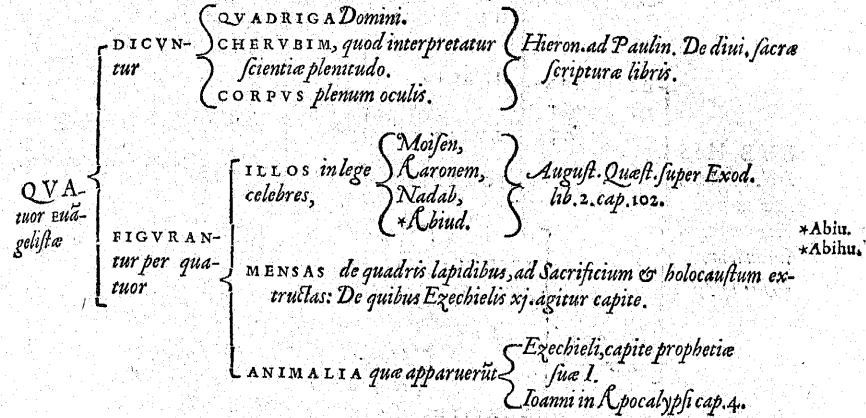 QVA-
tuor euã-
gelistæ
DICVN-
tur
QVADRIGA Domini.
CHERVBIM, quod interpretatur
scientiæ plenitudo.
CORPVS plenum oculis.
Hieron. ad Paulin. De diui. sacræ
scripturæ libris.
FIGVRAN-
tur per qua-
tuor
ILLOS in lege
celebres,
Moisen,
Aaronem,
Nadab,
*Abiud.
August. Quæst. super Exod.
lib. 2. cap. 102.
*Abiu.
*Abihu.
MENSAS de quadris lapidibus, ad Sacrificium & holocaustum ex-
tructas: De quibus Ezechielis xj. agitur capite.
ANIMALIA quæ apparuerũt
Ezechieli, capite prophetiæ
suæ I.
Ioanni in Apocalypsi cap. 4.